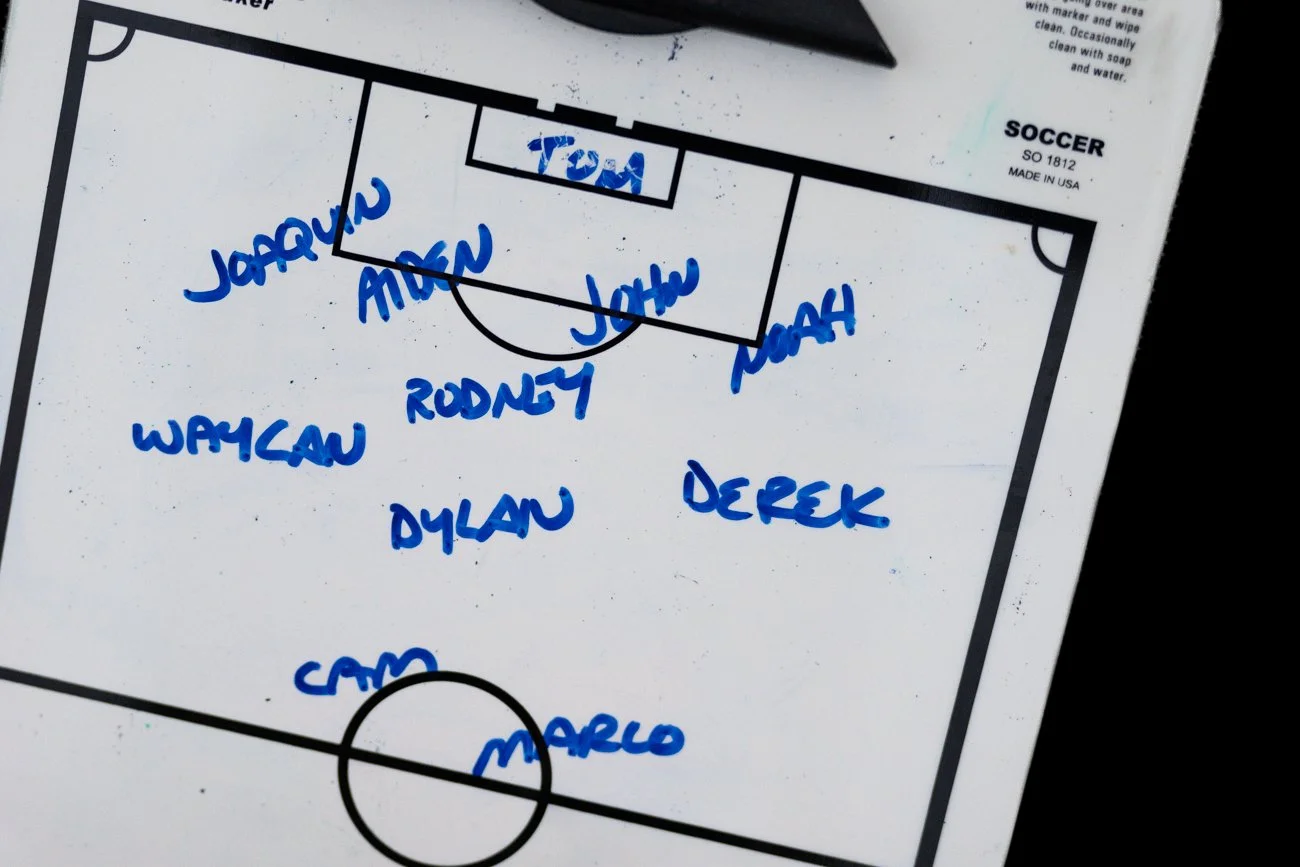 with marker and wipe
clean. Occasionally
clean with soap
and water.
SOCCER
SO 1812
MADE IN USA
TOM
JOAQUIN
AIDEN
JOHN
NOAH
RODNEY
WAYCAN
DEREK
DYLAN
CAM
MARCO